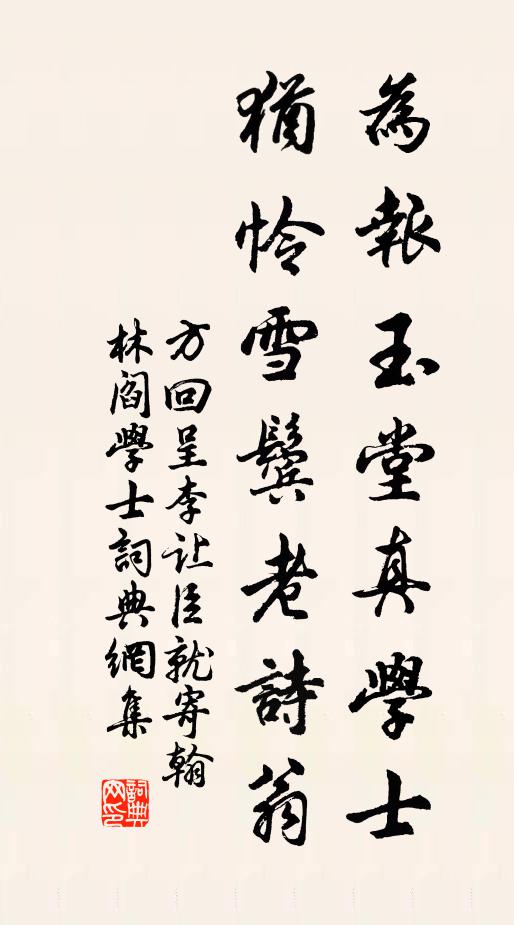 為報玉堂真學士
猶怜雪鬢老詩翁
方回呈李让臣就寄翰
林閻學士詞典網集
詞典网印